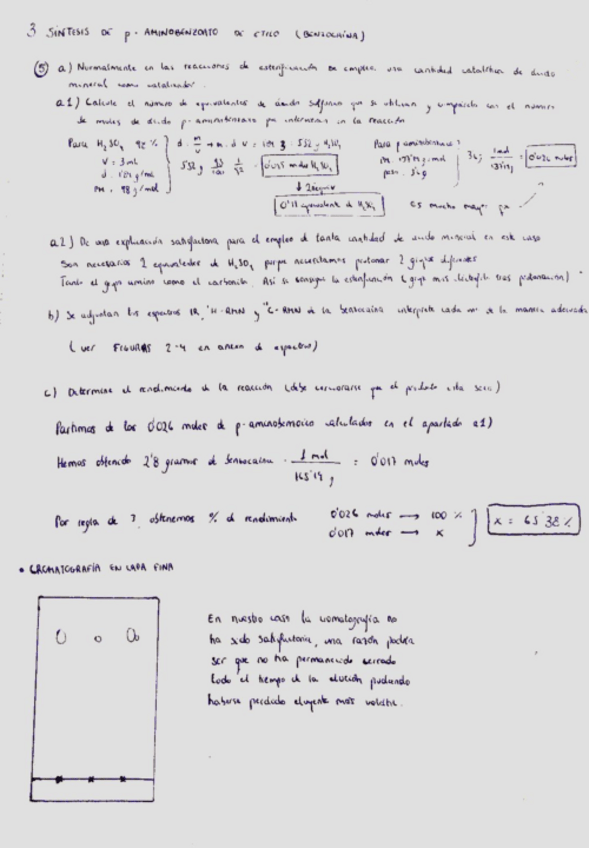 3 SINTESIS DE p-AMINOBENZOATO DE ETILO (BENZOCAÍNA)
5 a) Normalmente en las reacciones de esterificación se emplea una cantidad catalítica de ácido
mineral como catalizador.
a.1) Calcule el número de equivalentes de ácido sulfúrico que se utilizan y compárelo con el número
de moles de ácido p-aminobenzoico que intervienen en la reacción
Para H2SO4 %
V = 3 ml
d = g/ml
PM = 98 g/mol
d = m/v → m = d · v = 3 = g H2SO4
moles H2SO4
↓ 2 equiv
0'11 equivalente de H2SO4
Para p-aminobenzoico
1 mol
0'026 moles
Es mucho mayor
a.2) De una explicación satisfactoria para el empleo de tanta cantidad de ácido mineral en este caso
Son necesarios 2 equivalentes de H2SO4 porque necesitamos protonar 2 grupos diferentes
Tanto el grupo amino como el carbonilo. Así se consigue la esterificación ( grupo más tras protonación)
b) Se adjuntan los espectros IR, 1H-RMN y 13C-RMN de la benzocaína interprete cada uno de la manera adecuada
(ver FIGURAS 2-4 en anexo de espectros)
c) Determine el rendimiento de la reacción (debe cerciorarse que el producto esta seco)
Partimos de los 0'026 moles de p-aminobenzoico calculados en el apartado a1)
Hemos obtenido 2'8 gramos de benzocaina · 1 mol / 165'19 g = 0'017 moles
Por regla de 3, obtenemos % de rendimiento
0'026 moles → 100 %
0'017 moles → x
x = 65'38 %
• CROMATOGRAFÍA EN CAPA FINA
En nuestro caso la cromatografía no
ha sido satisfactoria, una razón podría
ser que no ha permanecido cerrado
todo el tiempo de la elución pudiendo
haberse perdido eluyente más volátil.